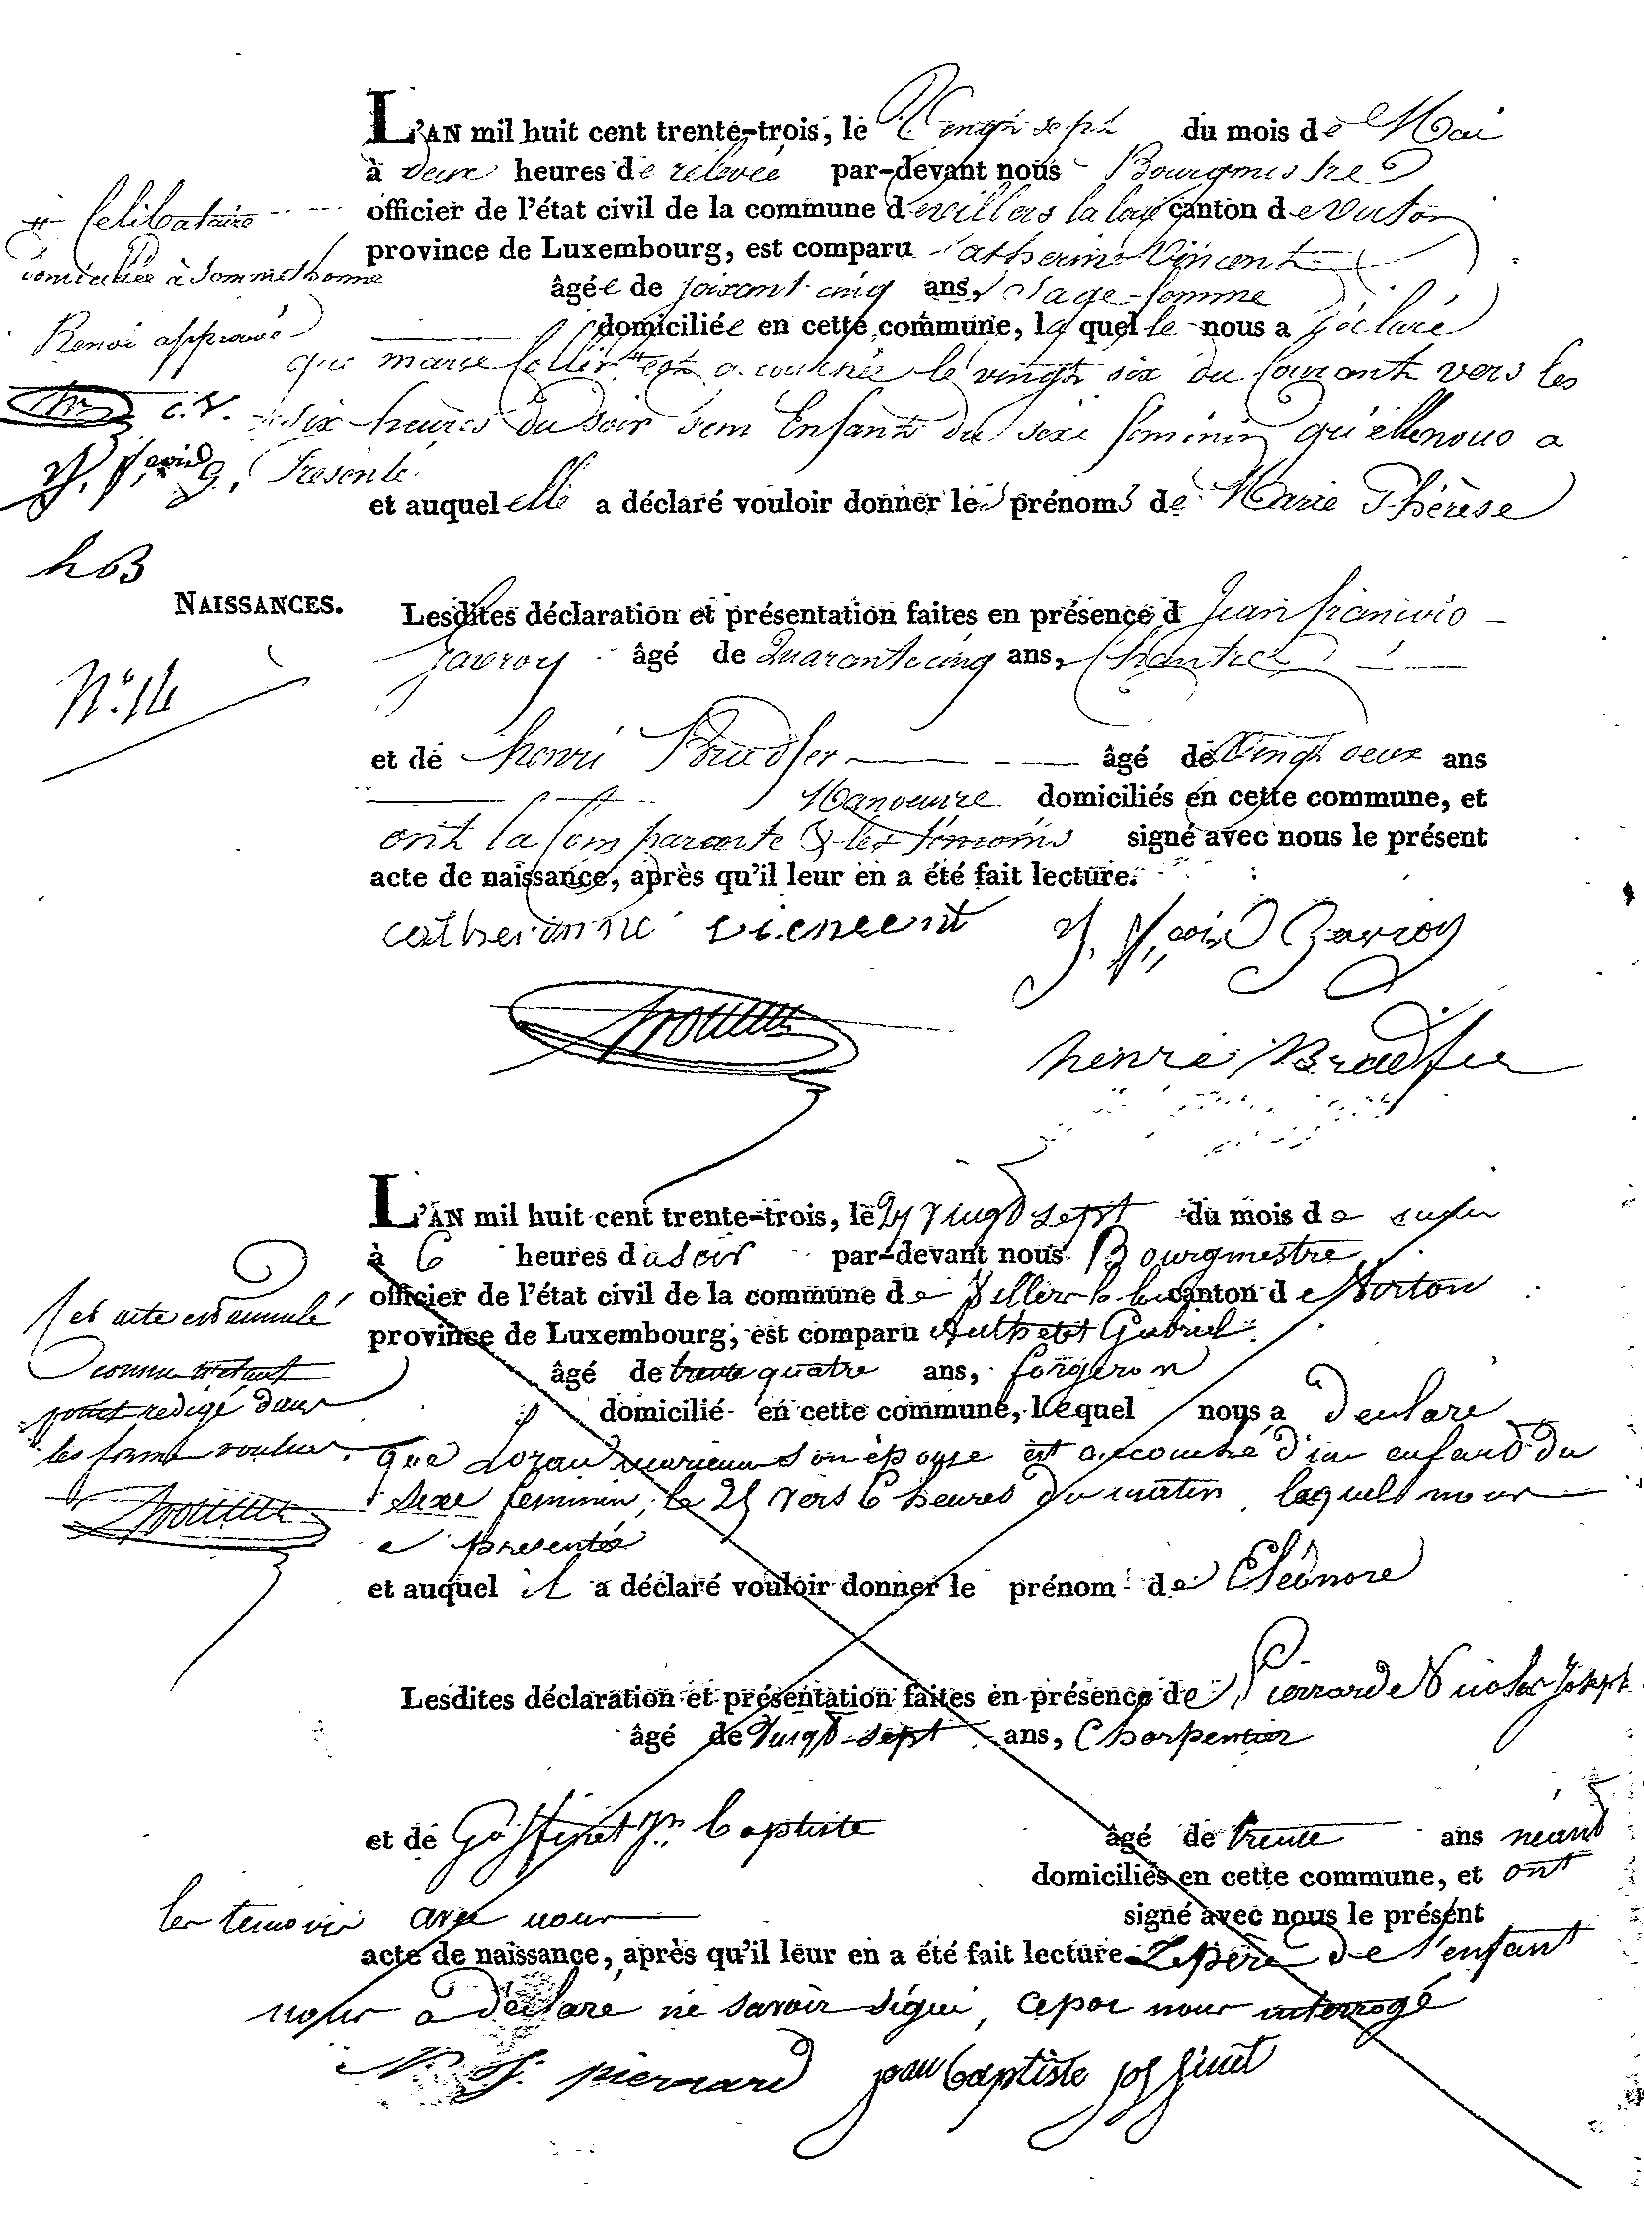 L'AN mil huit cent trente-trois, le Vingt sept du mois de Mai
à deux heures de relevée par-devant nous Bourgmestre
officier de l'état civil de la commune de villers la loue canton de virton
province de Luxembourg, est comparu Catherine Vincent
âgée de soixant cinq ans, Sage-femme
domiciliée en cette commune, la quelle nous a Déclaré
que marie # est accouchée le vingt six du Courant vers les
six heures du Soir d'un Enfant du sexe féminin qu'elle nous a
Présenté
et auquel elle a déclaré vouloir donner les prénoms de Marie Thérèse
# Celibataire
domiciliée à Sommethonne
Renvoi approuvé
C. V.
NAISSANCES.
N.° 14
Lesdites déclaration et présentation faites en présence d Jean francois
Javroy âgé de Quarante cinq ans, Chantre
et de henri Bradfer âgé de Vingt deux ans
Manoeuvre domiciliés en cette commune, et
ont la Comparante & les témoins signé avec nous le présent
acte de naissance, après qu'il leur en a été fait lecture.
catherinne viencent J. f.cois Javroy
henri Bradfer
L'AN mil huit cent trente-trois, le 27 vingt sept du mois de
à 6 heures du soir par-devant nous Bourgmestre
officier de l'état civil de la commune de Villers la loue canton de Virton
province de Luxembourg, est comparu Authelet Gabriel
âgé de trente quatre ans, forgeron
domicilié en cette commune, lequel nous a déclaré
que son épouse est accouché d'un enfant du
sexe feminin, le 25 vers 6 heures du matin, lequels nous
a présenté
et auquel il a déclaré vouloir donner le prénom de Eléonore
Cet acte est annulé
comme n'etant
point redigé dans
les formes voulues.
Lesdites déclaration et présentation faites en présence de Pierrard Nicolas Joseph
âgé de vingt-sept ans, Charpentier
et de Goffinet Jn baptiste âgé de trente ans néant
domiciliés en cette commune, et ont
les temoins avec nous signé avec nous le présent
acte de naissance, après qu'il leur en a été fait lecture Le père de l'enfant
nous a déclaré ne savoir signé, ce par nous interrogé
N. J. pierrard jean baptiste goffinet